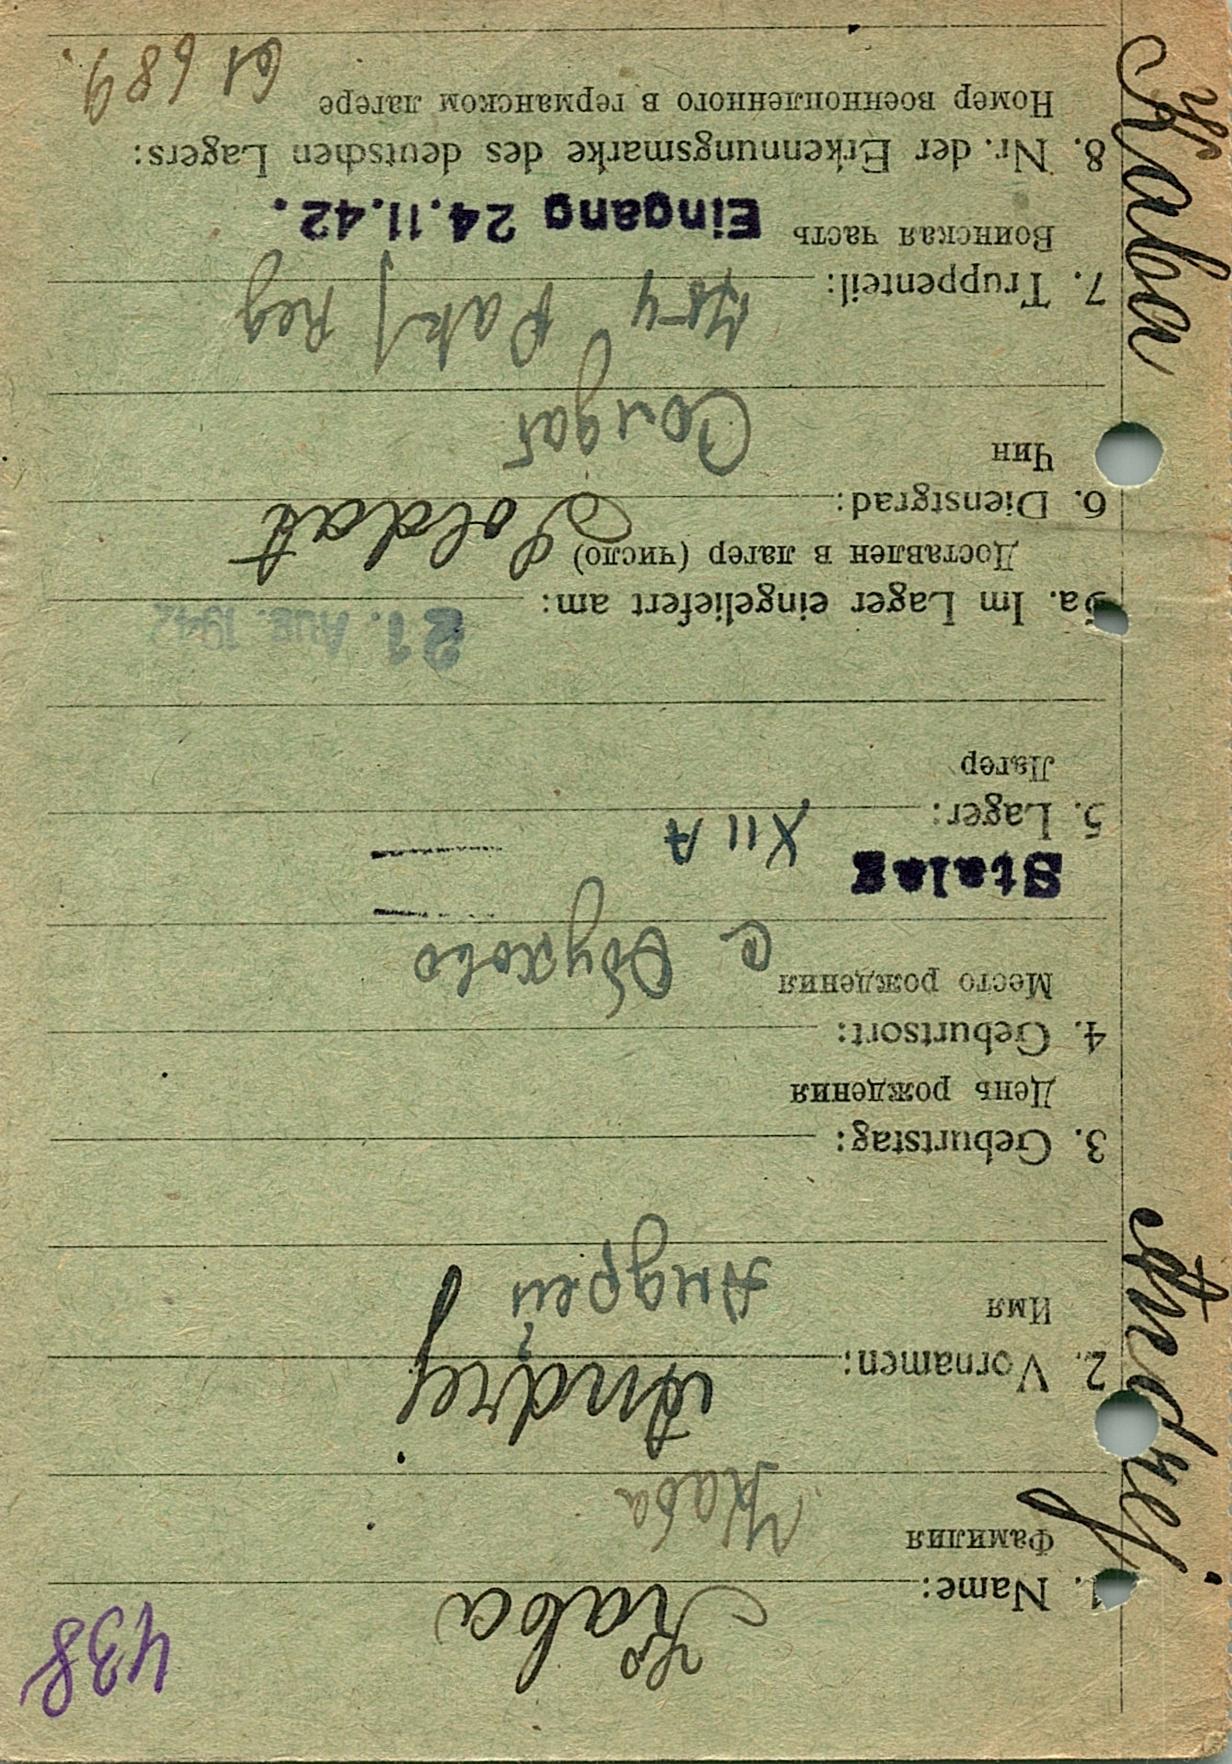 438
1. Name: Kaba
Фамилия Каба
2. Vornamen: Andrej
Имя Андрей
3. Geburtstag:
День рождения
4. Geburtsort:
Место рождения с Обухово
Stalag
5. Lager: XII A
Лагер
5a. Im Lager eingeliefert am: 21. AUG. 1942
Доставлен в лагер (число)
6. Dienstgrad: Soldat
Чин Солдат
7. Truppenteil:
Воинская часть Eingang 24.11.42.
8. Nr. der Erkennungsmarke des deutschen Lagers:
Номер военнопленного в германском лагере 61689.
Kaba
Andrej